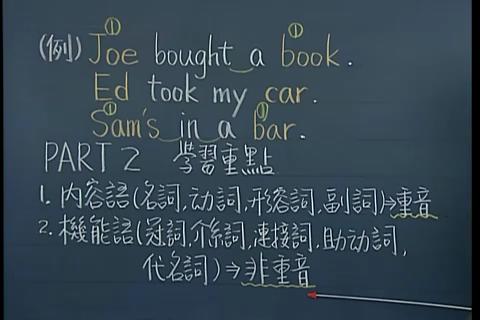 (例) Joe bought a book.
Ed took my car.
Sam's in a bar.
PART 2 學習重點
1. 內容語(名詞,动詞,形容詞,副詞)⇒重音
2. 機能語(冠詞,介系詞,連接詞,助动詞,
代名詞)⇒非重音